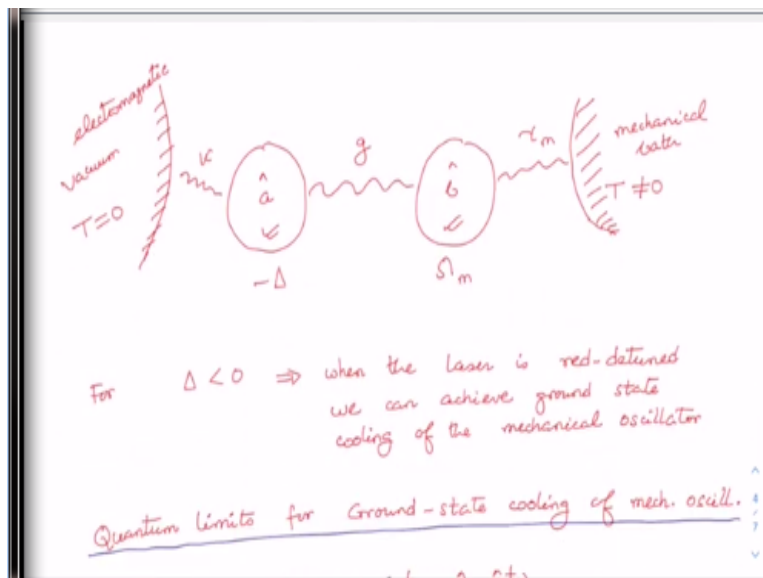 electromagnetic
vacuum
T=0
κ
â
-Δ
g
b̂
Ωm
γm
mechanical
bath
T≠0
For Δ<0 ⇒ when the laser is red-detuned
we can achieve ground state
cooling of the mechanical oscillator
Quantum limits for Ground-state cooling of mech. oscill.
4
/
7